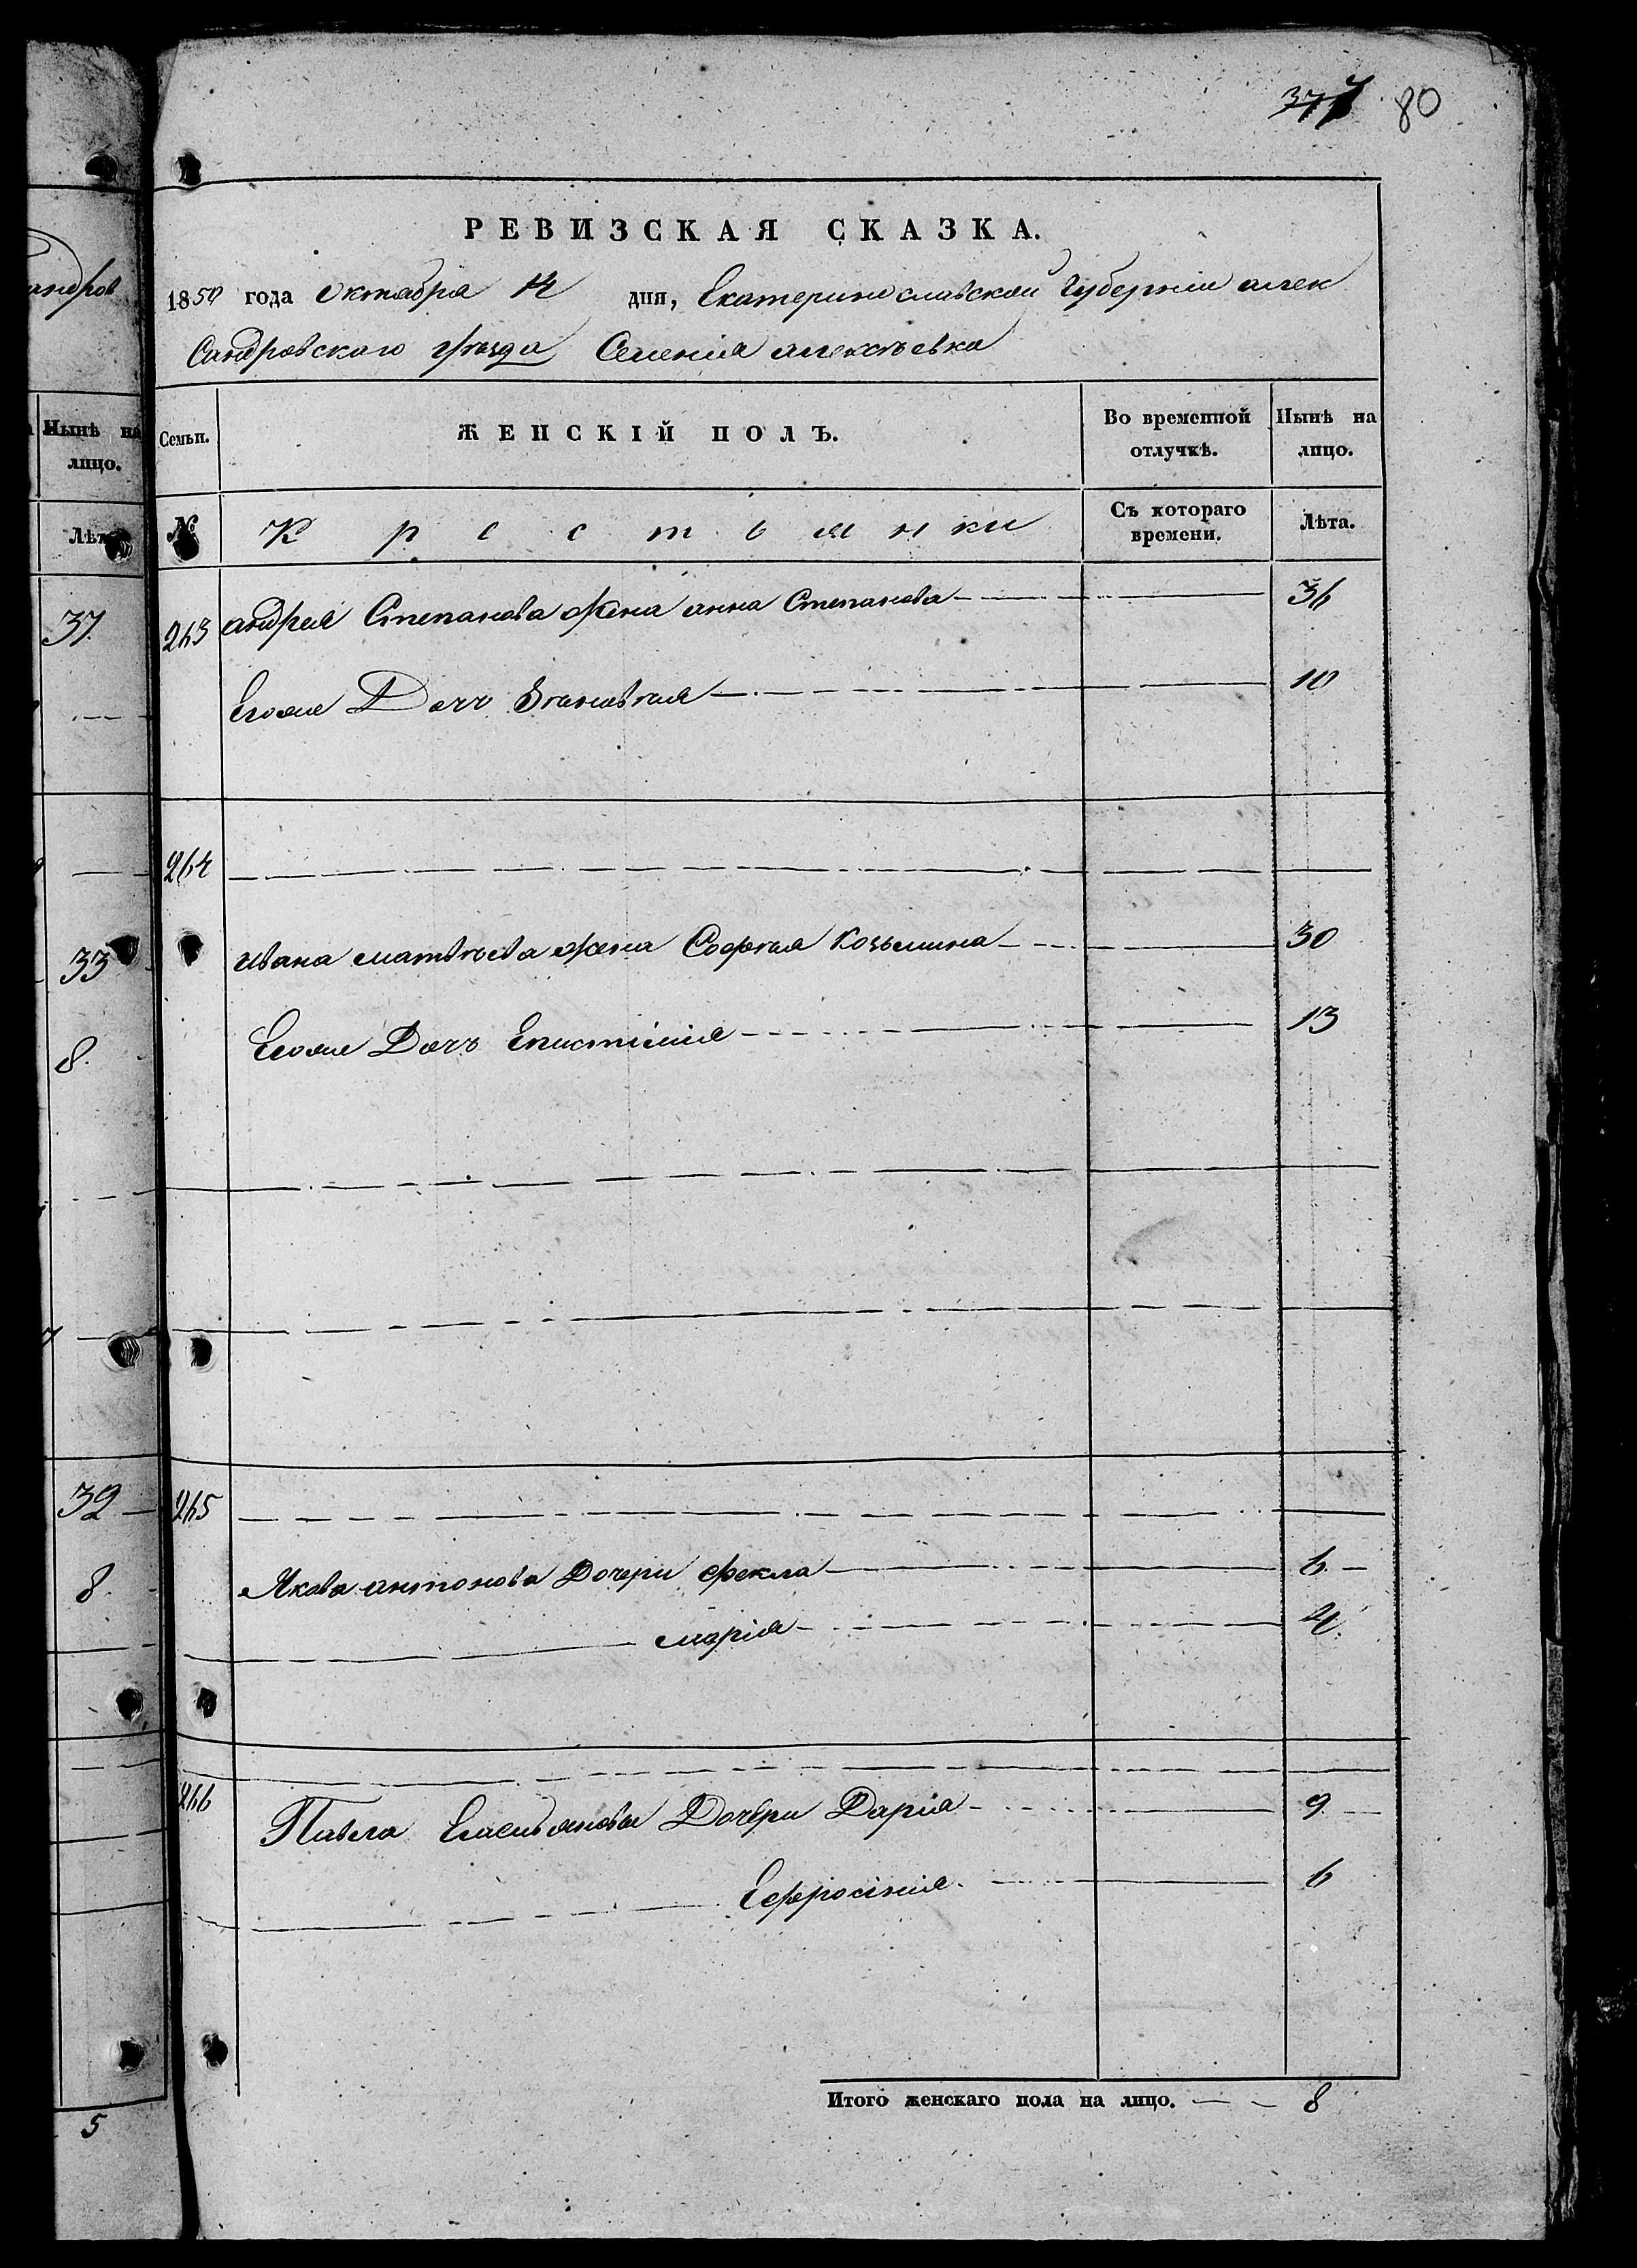 377 80
андров
РЕВИЗСКАЯ СКАЗКА.
1850 года октября дня, Екатеринославской Губерніи алек
Сандровского уѣзда Селенія алексѣевка
Нынѣ на лицо.
Лѣта
Семьи. ЖЕНСКІЙ ПОЛЪ. Во временной отлучкѣ. Нынѣ на лицо.
№ Крестьянки Съ котораго времени. Лѣта.
37. 263 андрея Степанова жена анна Степанова 36
Егоже Дочь 10
264
33 ивана матвѣева жена Софья Козьмина 30
8. Егоже Дочь Епистимія 13
32 265
8. Якова антонова Дочери фекла 6.
марія 4.
266
Павла Емельянова Дочери Дарія 9
Ефросінія 6
Итого женскаго пола на лицо. 8
5